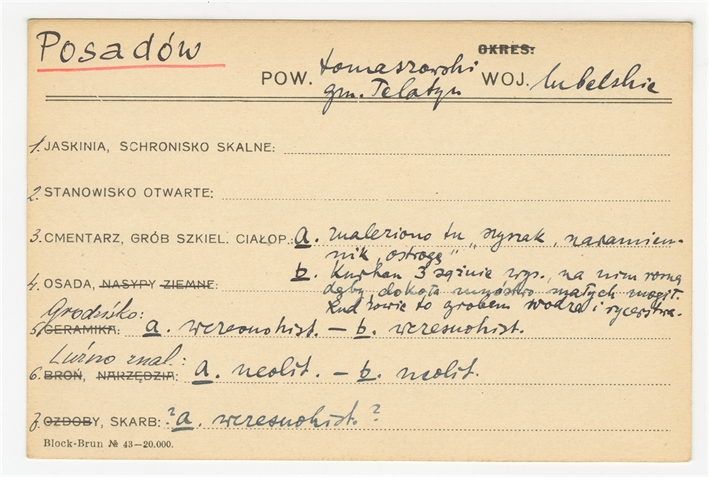 Posadów
OKRES:
POW. tomaszowski WOJ. lubelskie
gm. Telatyn
1. JASKINIA, SCHRONISKO SKALNE:
2. STANOWISKO OTWARTE:
3. CMENTARZ, GRÓB SZKIEL. CIAŁOP.: a. znaleziono tu „szyszak, naramien-
nik, ostrogę"
b. Kurhan 3 sążnie wys., na nim rosną
4. OSADA, NASYPY ZIEMNE:
dęby dokoła mnóstwo małych mogił.
Lud zowie to grobem wodza i rycerstwa.
Grodzisko:
5. CERAMIKA: a. wczesnohist. – b. wczesnohist.
Luźno znal.:
6. BROŃ, NARZĘDZIA: a. neolit. – b. neolit.
7. OZDOBY, SKARB: ?a. wczesnohist.?
Block-Brun № 43–20.000.